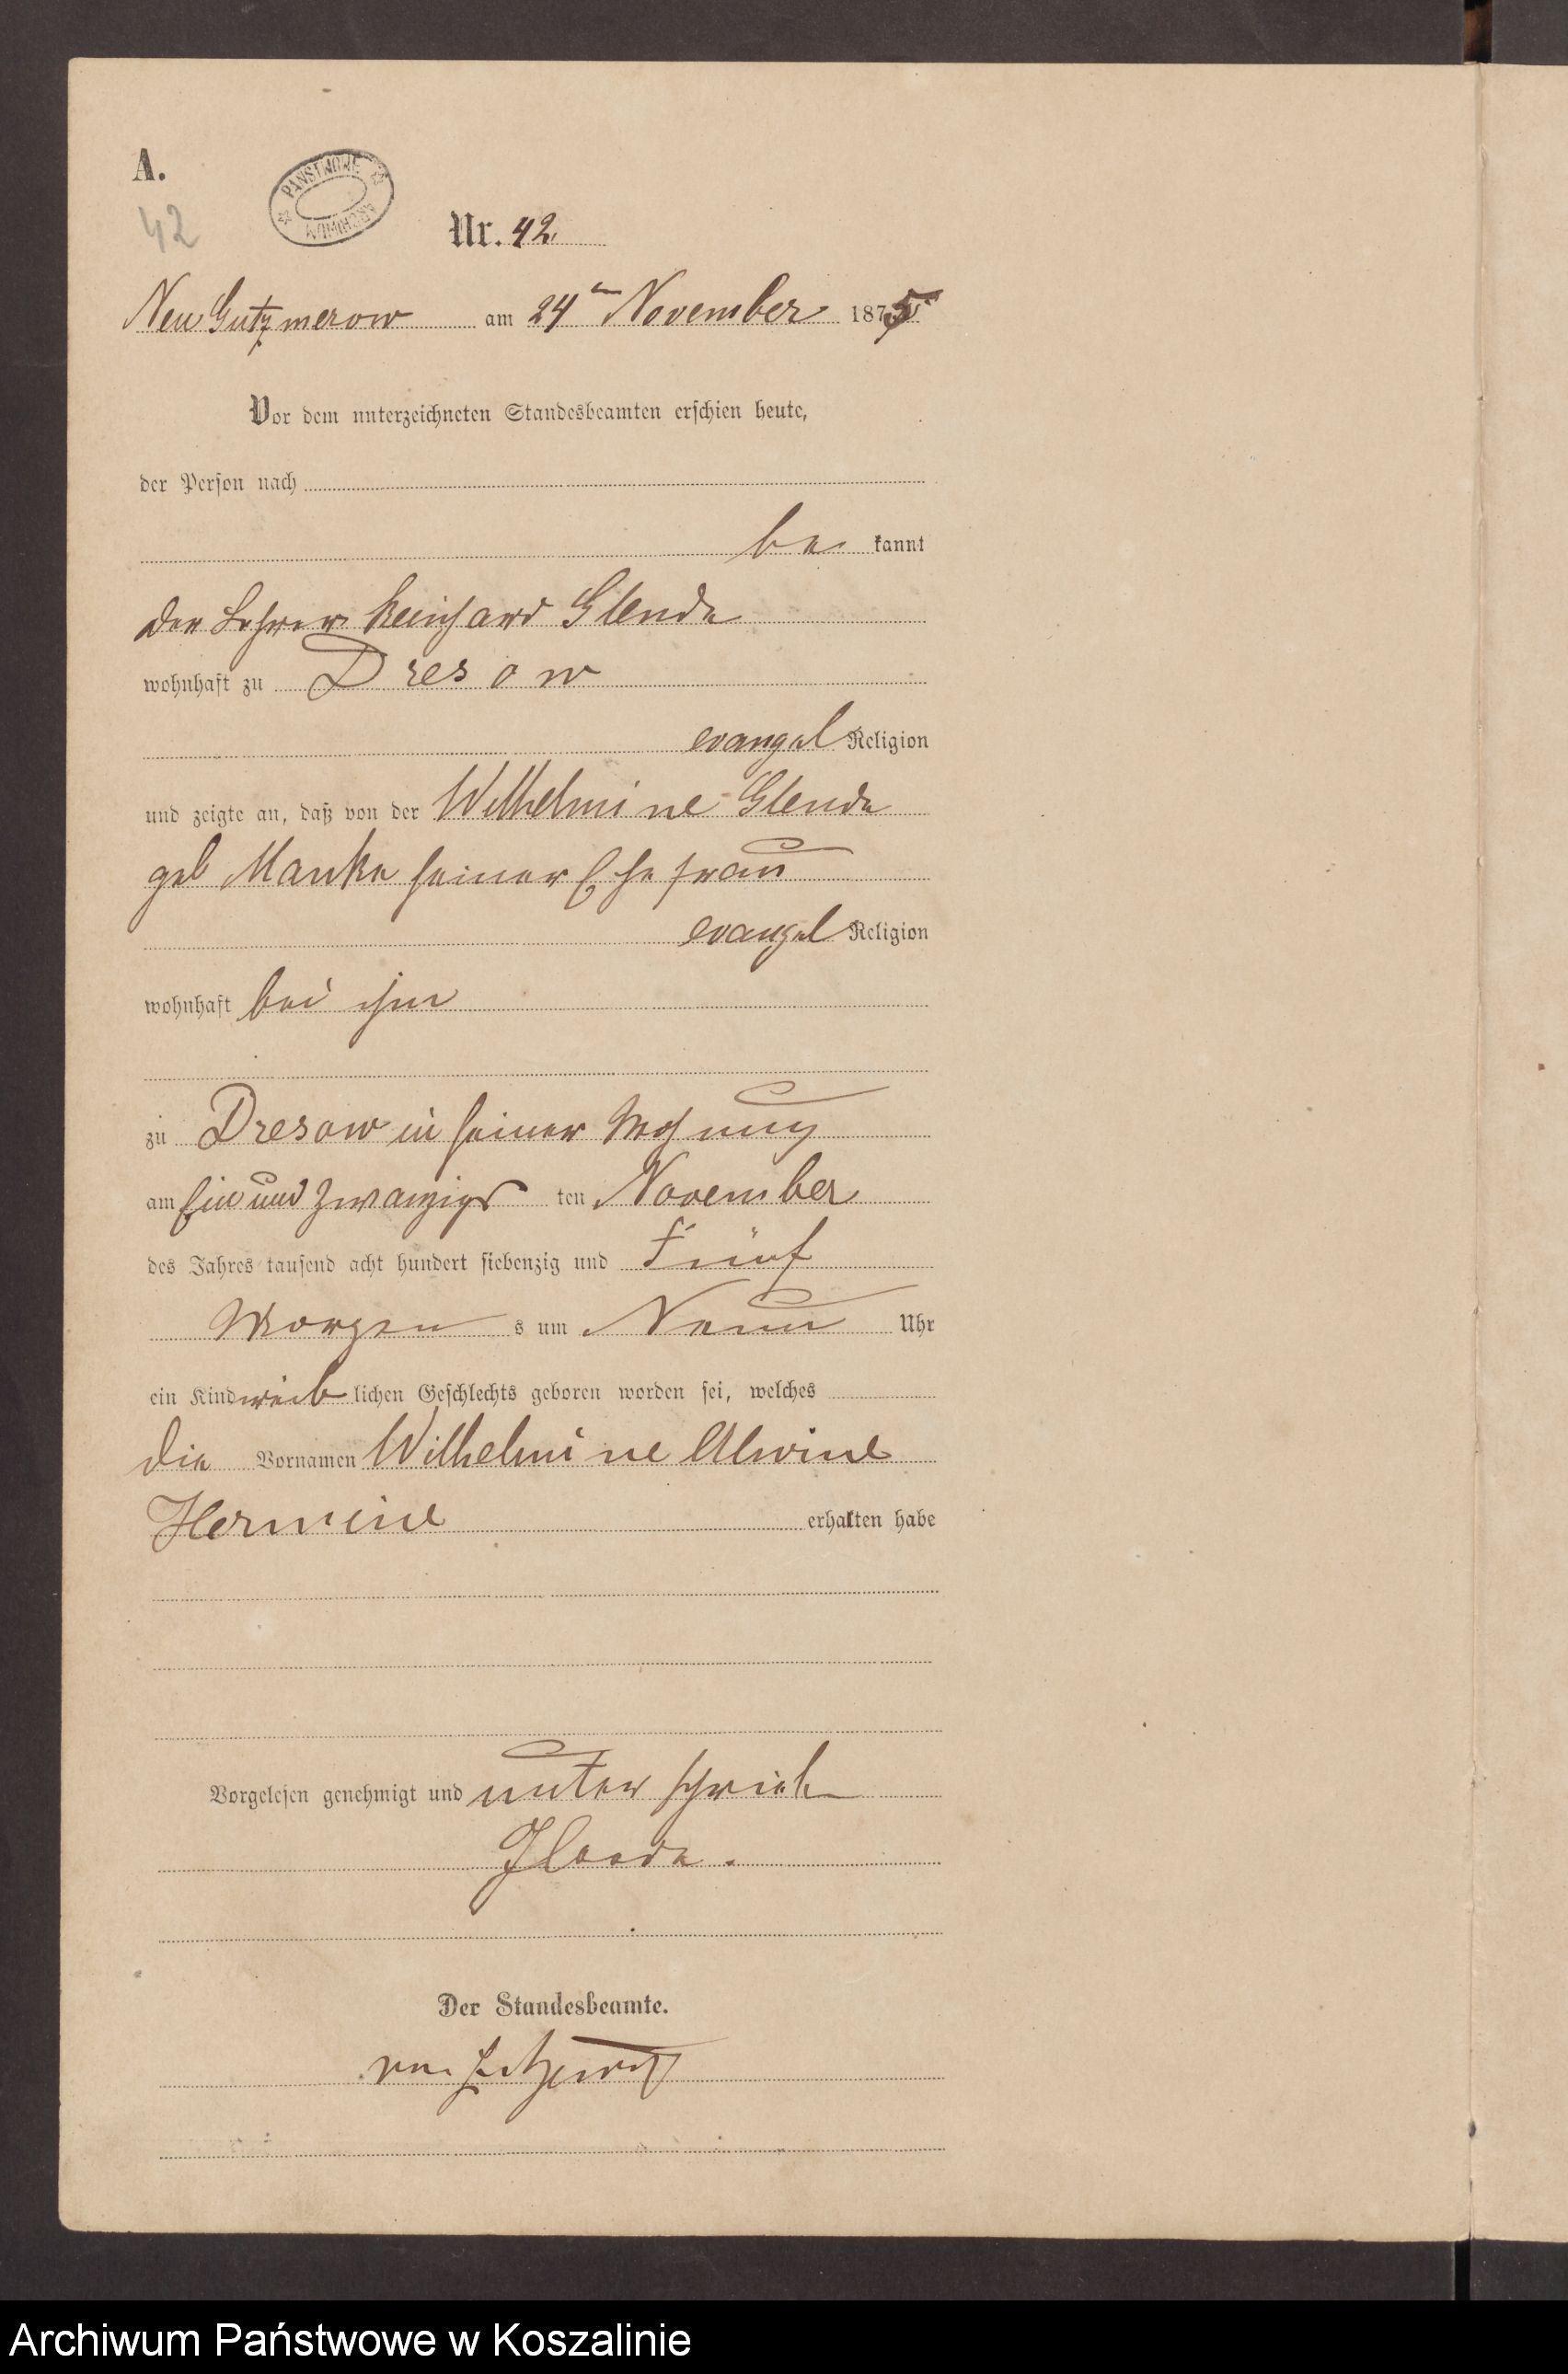 A.
42
PAŃSTWOWE ARCHIWUM
Nr. 42
Neu Gutzmerow am 24ten November 1875
Vor dem unterzeichneten Standesbeamten erschien heute,
der Person nach
be kannt
der Lehrer Reinhard Glende
wohnhaft zu Dresow
evangel Religion
und zeigte an, daß von der Wilhelmine Glende
geb Manke seiner Ehefrau
evangel Religion
wohnhaft bei ihm
zu Dresow in seiner Wohnung
am Ein und zwanzigs ten November
des Jahres tausend acht hundert siebenzig und Fünf
Morgen s um Neun Uhr
ein Kind weib lichen Geschlechts geboren worden sei, welches
die Vornamen Wilhelmine Alwine
Hermine erhalten habe
Vorgelesen genehmigt und unterschrieb
Der Standesbeamte.
von
Archiwum Państwowe w Koszalinie